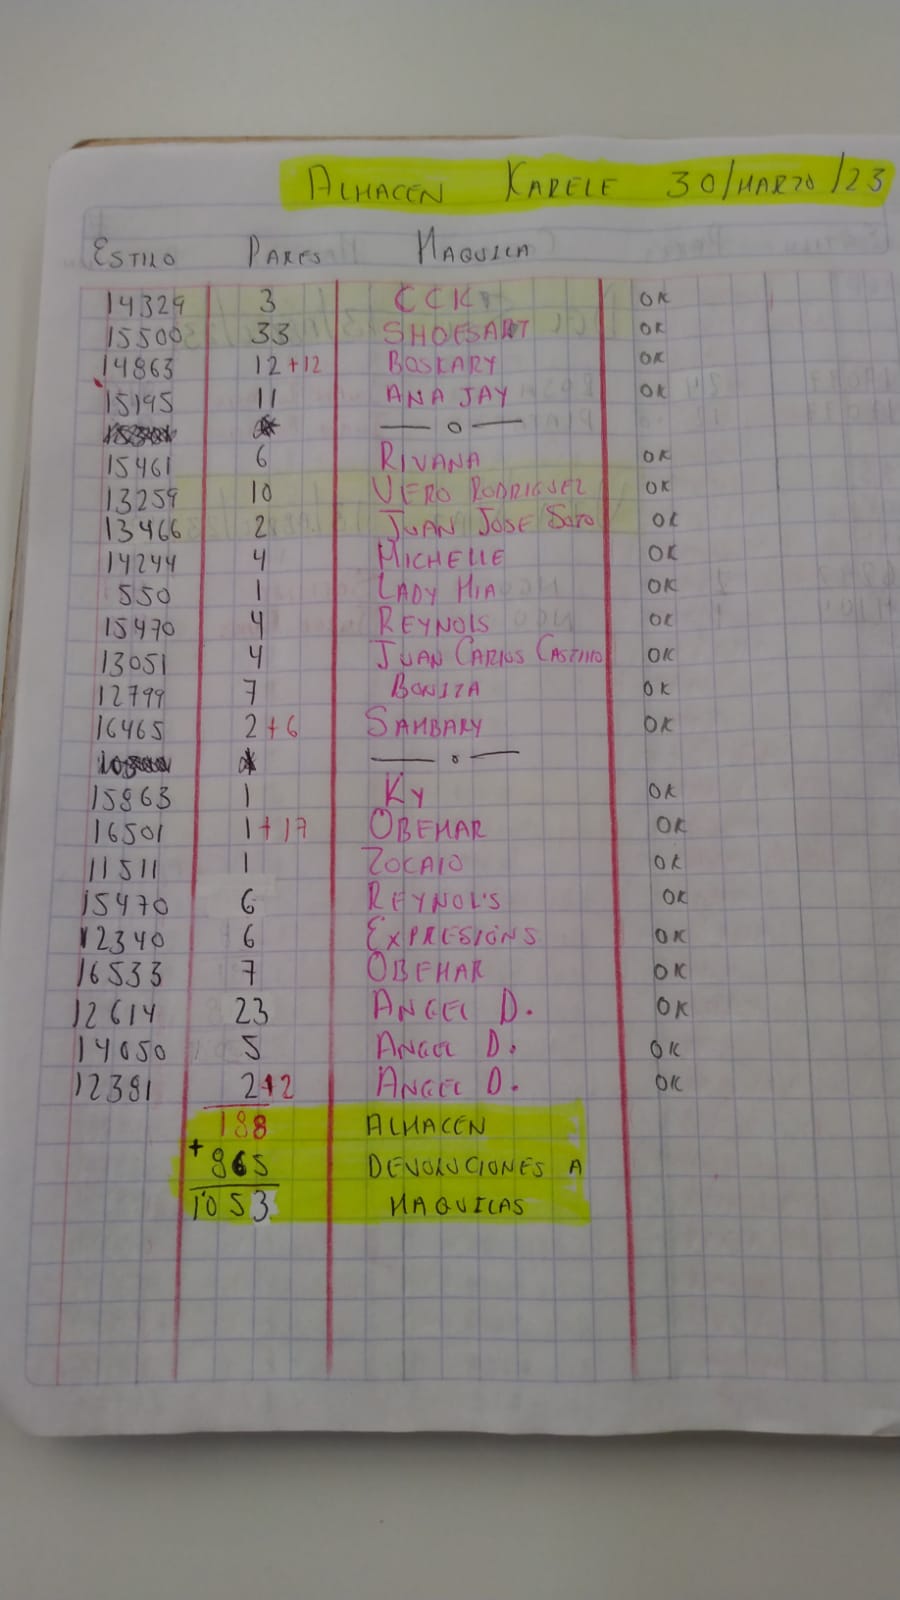 ALMACEN KARELE 30/MARZO/23
ESTILO PARES MAQUILA
14329 3 CCK OK
15500 33 SHOESART OK
14863 12+12 BOSKARY OK
15195 11 ANA JAY OK
— o —
15461 6 RIVANA OK
13259 10 VERO RODRIGUEZ OK
13466 2 JUAN JOSE SOTO OK
14244 4 MICHELLE OK
550 1 LADY MIA OK
15470 4 REYNOLS OK
13051 4 JUAN CARLOS CASTILLO OK
12799 7 BONITA OK
16465 2+6 SAMBARY OK
— o —
15863 1 KY OK
16501 1+17 OBEMAR OK
11511 1 ZOCALO OK
15470 6 REYNOL'S OK
12340 6 EXPRESIONS OK
16533 7 OBEMAR OK
12614 23 ANGEL D. OK
14050 5 ANGEL D. OK
12381 2+2 ANGEL D. OK
188 ALMACEN
+ 865 DEVOLUCIONES A
1053 MAQUILAS